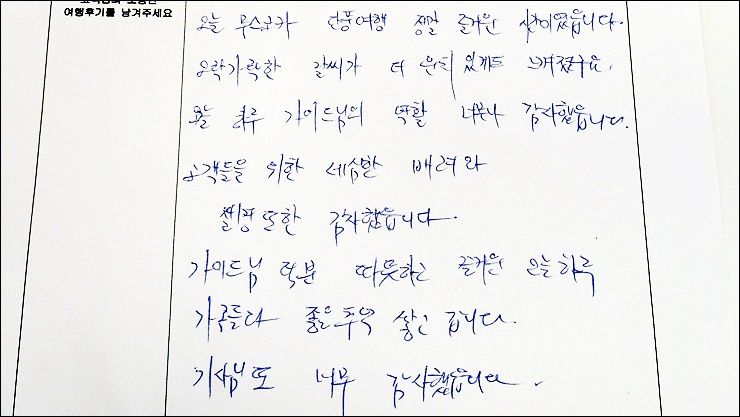 고객님의 소중한
여행후기를 남겨주세요
오늘 무스금카 단풍여행 정말 즐거운 시간이었습니다.
오락가락한 날씨가 더 운치 있게도 느껴졌구요.
오늘 하루 가이드님의 역할 너무나 감사했습니다.
고객들을 위한 세심한 배려와
힐링 또한 감사했습니다.
가이드님 덕분 따뜻하고 즐거운 오늘하루
가족들과 좋은추억 쌓고 갑니다.
기사님도 너무 감사했습니다.